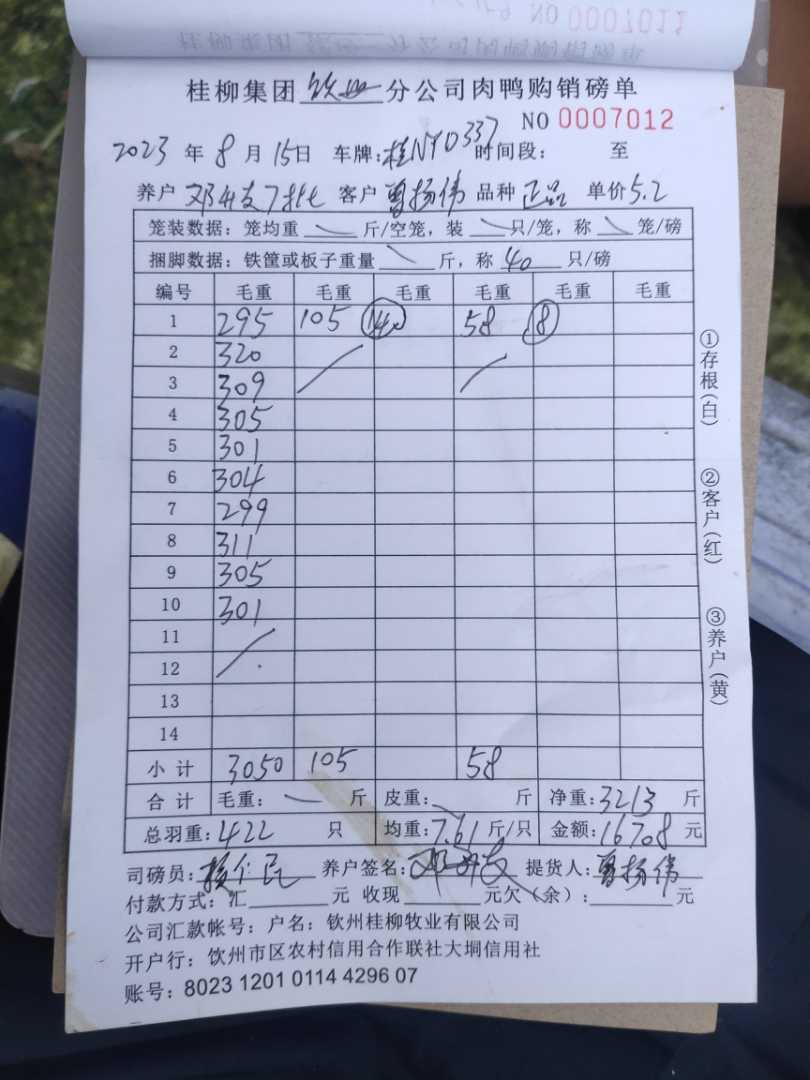 NO 0007011
桂柳集团 钦州 分公司肉鸭购销磅单
NO 0007012
2023 年 8 月 15日 车牌:桂NY0337 时间段: 至
养户 客户 曾扬伟 品种 正品 单价5.2
笼装数据: 笼均重 斤/空笼, 装 只/笼, 称 笼/磅
捆脚数据: 铁筐或板子重量 斤, 称 40 只/磅
编号 毛重 毛重 毛重 毛重 毛重 毛重
1 295 105 14 58 8
2 320
3 309
4 305
5 301
6 304
7 299
8 311
9 305
10 301
11
12
13
14
小计 3050 105 58
合计 毛重: 斤 皮重: 斤 净重:3213 斤
总羽重:422 只 均重:7.61 斤/只 金额:16708 元
司磅员: 养户签名: 提货人:曾扬伟
付款方式: 汇 元 收现 元欠(余): 元
公司汇款帐号: 户名: 钦州桂柳牧业有限公司
开户行: 钦州市区农村信用合作联社大垌信用社
账号: 8023 1201 0114 4296 07
①存根(白)
②客户(红)
③养户(黄)